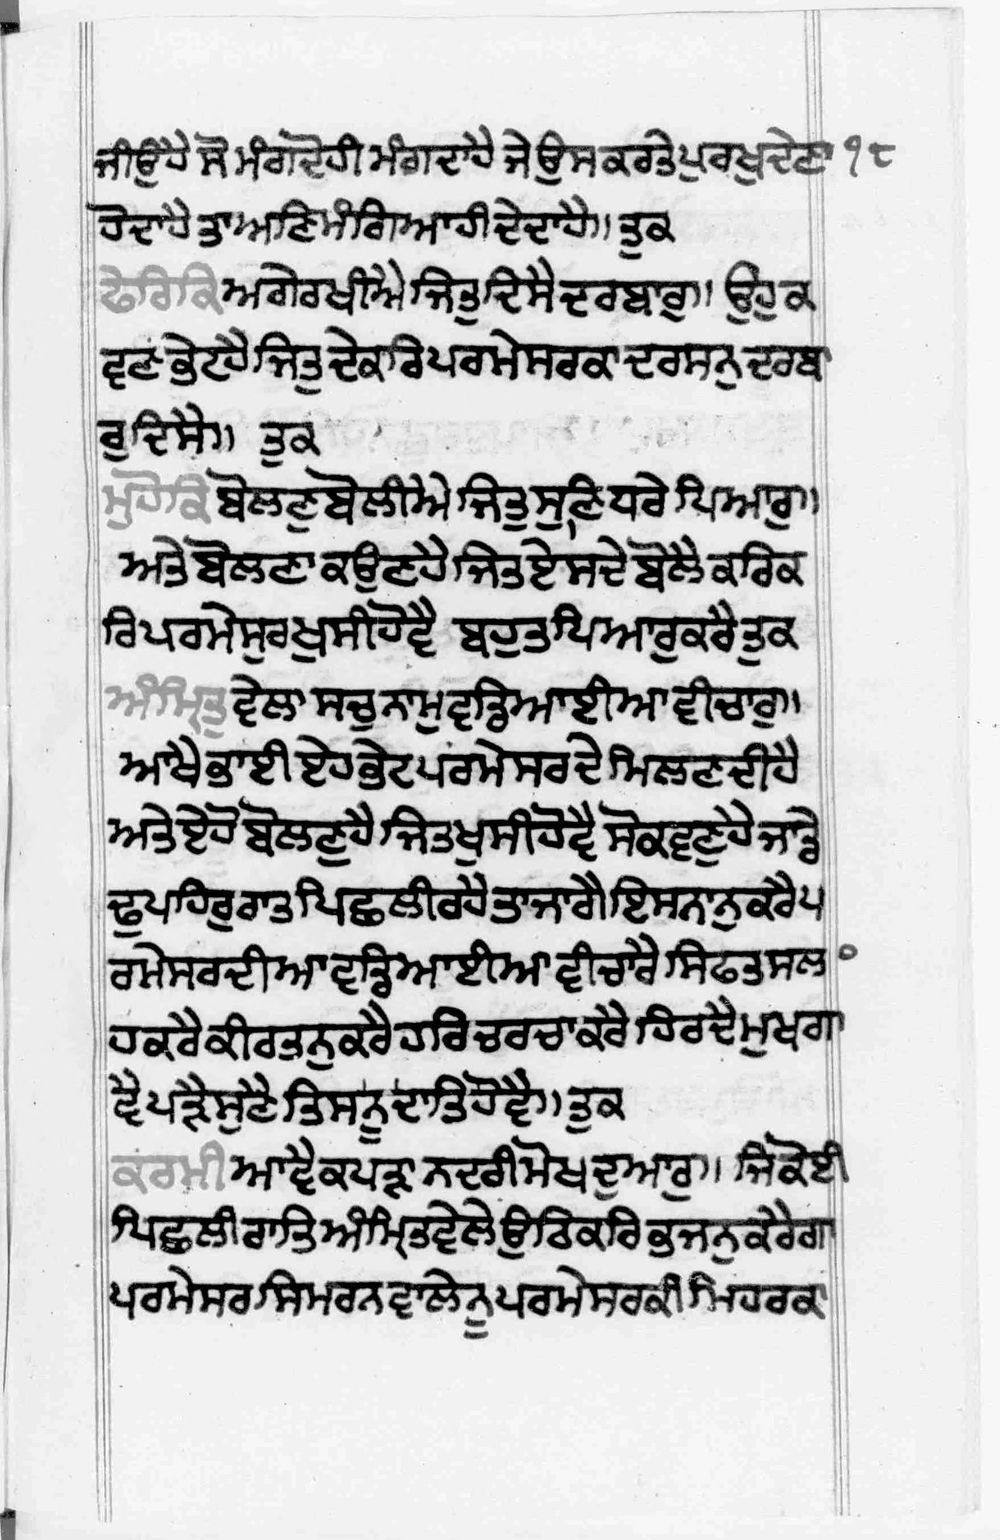 ਜੀਉ ਹੈ ਸੋ ਮੰਗਦੋ ਹੀ ਮੰਗਦਾ ਹੈ ਜੇ ਉਸ ਕਰਤੇ ਪੁਰਖੁ ਦੇਣਾ ੧੮
ਹੋਦਾ ਹੈ ਤਾ ਅਣਿਮੰਗਿਆ ਹੀ ਦੇਦਾ ਹੈ॥ ਤੁਕ
ਫੇਰਿ ਕਿ ਅਗੇ ਰਖੀਐ ਜਿਤੁ ਦਿਸੈ ਦਰਬਾਰੁ॥ ਉਹੁ ਕ
ਵਣ ਭੇਟ ਹੈ ਜਿਤੁ ਦੇ ਕਰਿ ਪਰਮੇਸਰ ਕਾ ਦਰਸਨੁ ਦਰਬਾ
ਰੁ ਦਿਸੈ॥ ਤੁਕ
ਮੁਹੋ ਕਿ ਬੋਲਣੁ ਬੋਲੀਐ ਜਿਤੁ ਸੁਣਿ ਧਰੇ ਪਿਆਰੁ॥
ਅਤੇ ਬੋਲਣਾ ਕਉਣ ਹੈ ਜਿਤ ਏਸ ਦੇ ਬੋਲੈ ਕਰਿ ਕ
ਰਿ ਪਰਮੇਸੁਰ ਖੁਸੀ ਹੋਵੈ ਬਹੁਤ ਪਿਆਰੁ ਕਰੈ ਤੁਕ
ਅੰਮ੍ਰਿਤੁ ਵੇਲਾ ਸਚੁ ਨਾਮੁ ਵਡਿਆਈਆ ਵੀਚਾਰੁ॥
ਆਖੈ ਭਾਈ ਏਹ ਭੇਟ ਪਰਮੇਸਰ ਦੇ ਮਿਲਣ ਦੀ ਹੈ
ਅਤੇ ਏਹੋ ਬੋਲਣੁ ਹੈ ਜਿਤ ਖੁਸੀ ਹੋਵੈ ਸੋ ਕਵਣੁ ਹੈ ਜਾ ਡੇ
ਢੁ ਪਹਿਰੁ ਰਾਤ ਪਿਛਲੀ ਰਹੈ ਤਾ ਜਾਗੈ ਇਸਨਾਨੁ ਕਰੈ ਪ
ਰਮੇਸਰ ਦੀਆ ਵਡਿਆਈਆ ਵੀਚਾਰੈ ਸਿਫਤ ਸਲਾ
ਹ ਕਰੈ ਕੀਰਤਨੁ ਕਰੈ ਹਰਿ ਚਰਚਾ ਕਰੈ ਹਿਰਦੈ ਮੁਖ ਗਾ
ਵੈ ਪੜੈ ਸੁਣੈ ਤਿਸ ਨੂ ਦਾਤਿ ਹੋਵੈ॥ ਤੁਕ
ਕਰਮੀ ਆਵੈ ਕਪੜਾ ਨਦਰੀ ਮੋਖੁ ਦੁਆਰੁ॥ ਜਿ ਕੋਈ
ਪਿਛਲੀ ਰਾਤਿ ਅੰਮ੍ਰਿਤ ਵੇਲੇ ਉਠਿ ਕਰਿ ਭਜਨੁ ਕਰੇਗਾ
ਪਰਮੇਸਰ ਸਿਮਰਨ ਵਾਲੇ ਨੂ ਪਰਮੇਸਰ ਕੀ ਮਿਹਰ ਕਾ